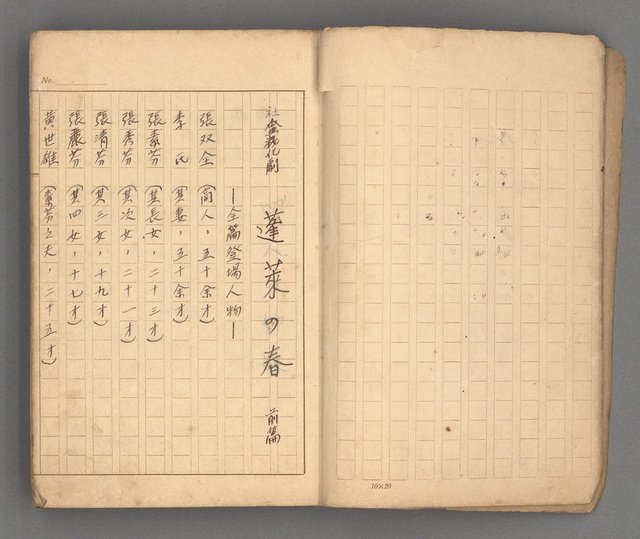 社會教化劇 蓬萊の春 前篇
—全篇登場人物—
張双全 (商人，五十余才)
李氏 (其妻，五十余才)
張素芬 (其長女，二十三才)
張秀芬 (其次女，二十一才)
張清芬 (其三女，十九才)
張麗芬 (其四女，十七才)
黃世雄 (素芬之夫，二十五才)
No.
10×20